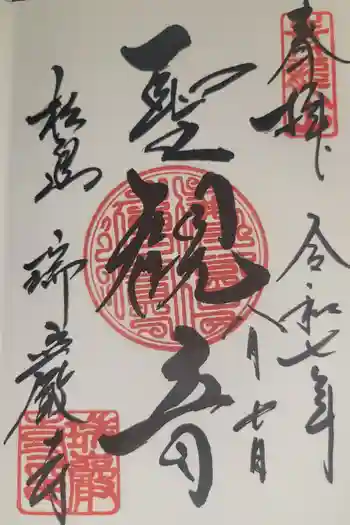 奉拝
令和七年
八月七日
聖観音
松島 瑞巌寺